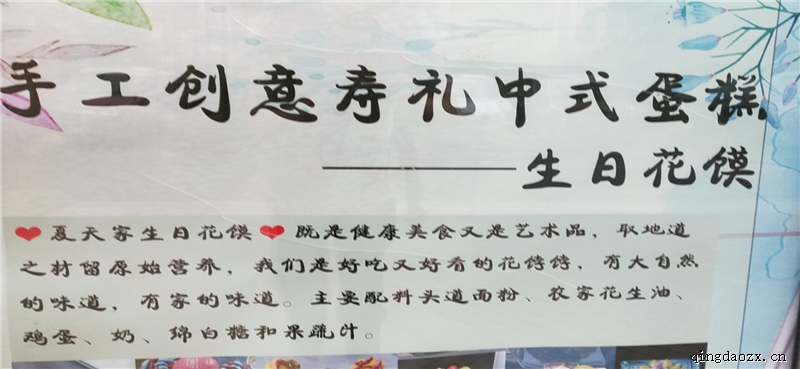 手工创意寿礼中式蛋糕
——生日花馍
❤夏天家生日花馍❤既是健康美食又是艺术品，取地道
之材留原始营养，我们是好吃又好看的花饽饽，有大自然
的味道，有家的味道。主要配料头道面粉、农家花生油、
鸡蛋、奶、绵白糖和果疏汁。
qingdaozx.cn